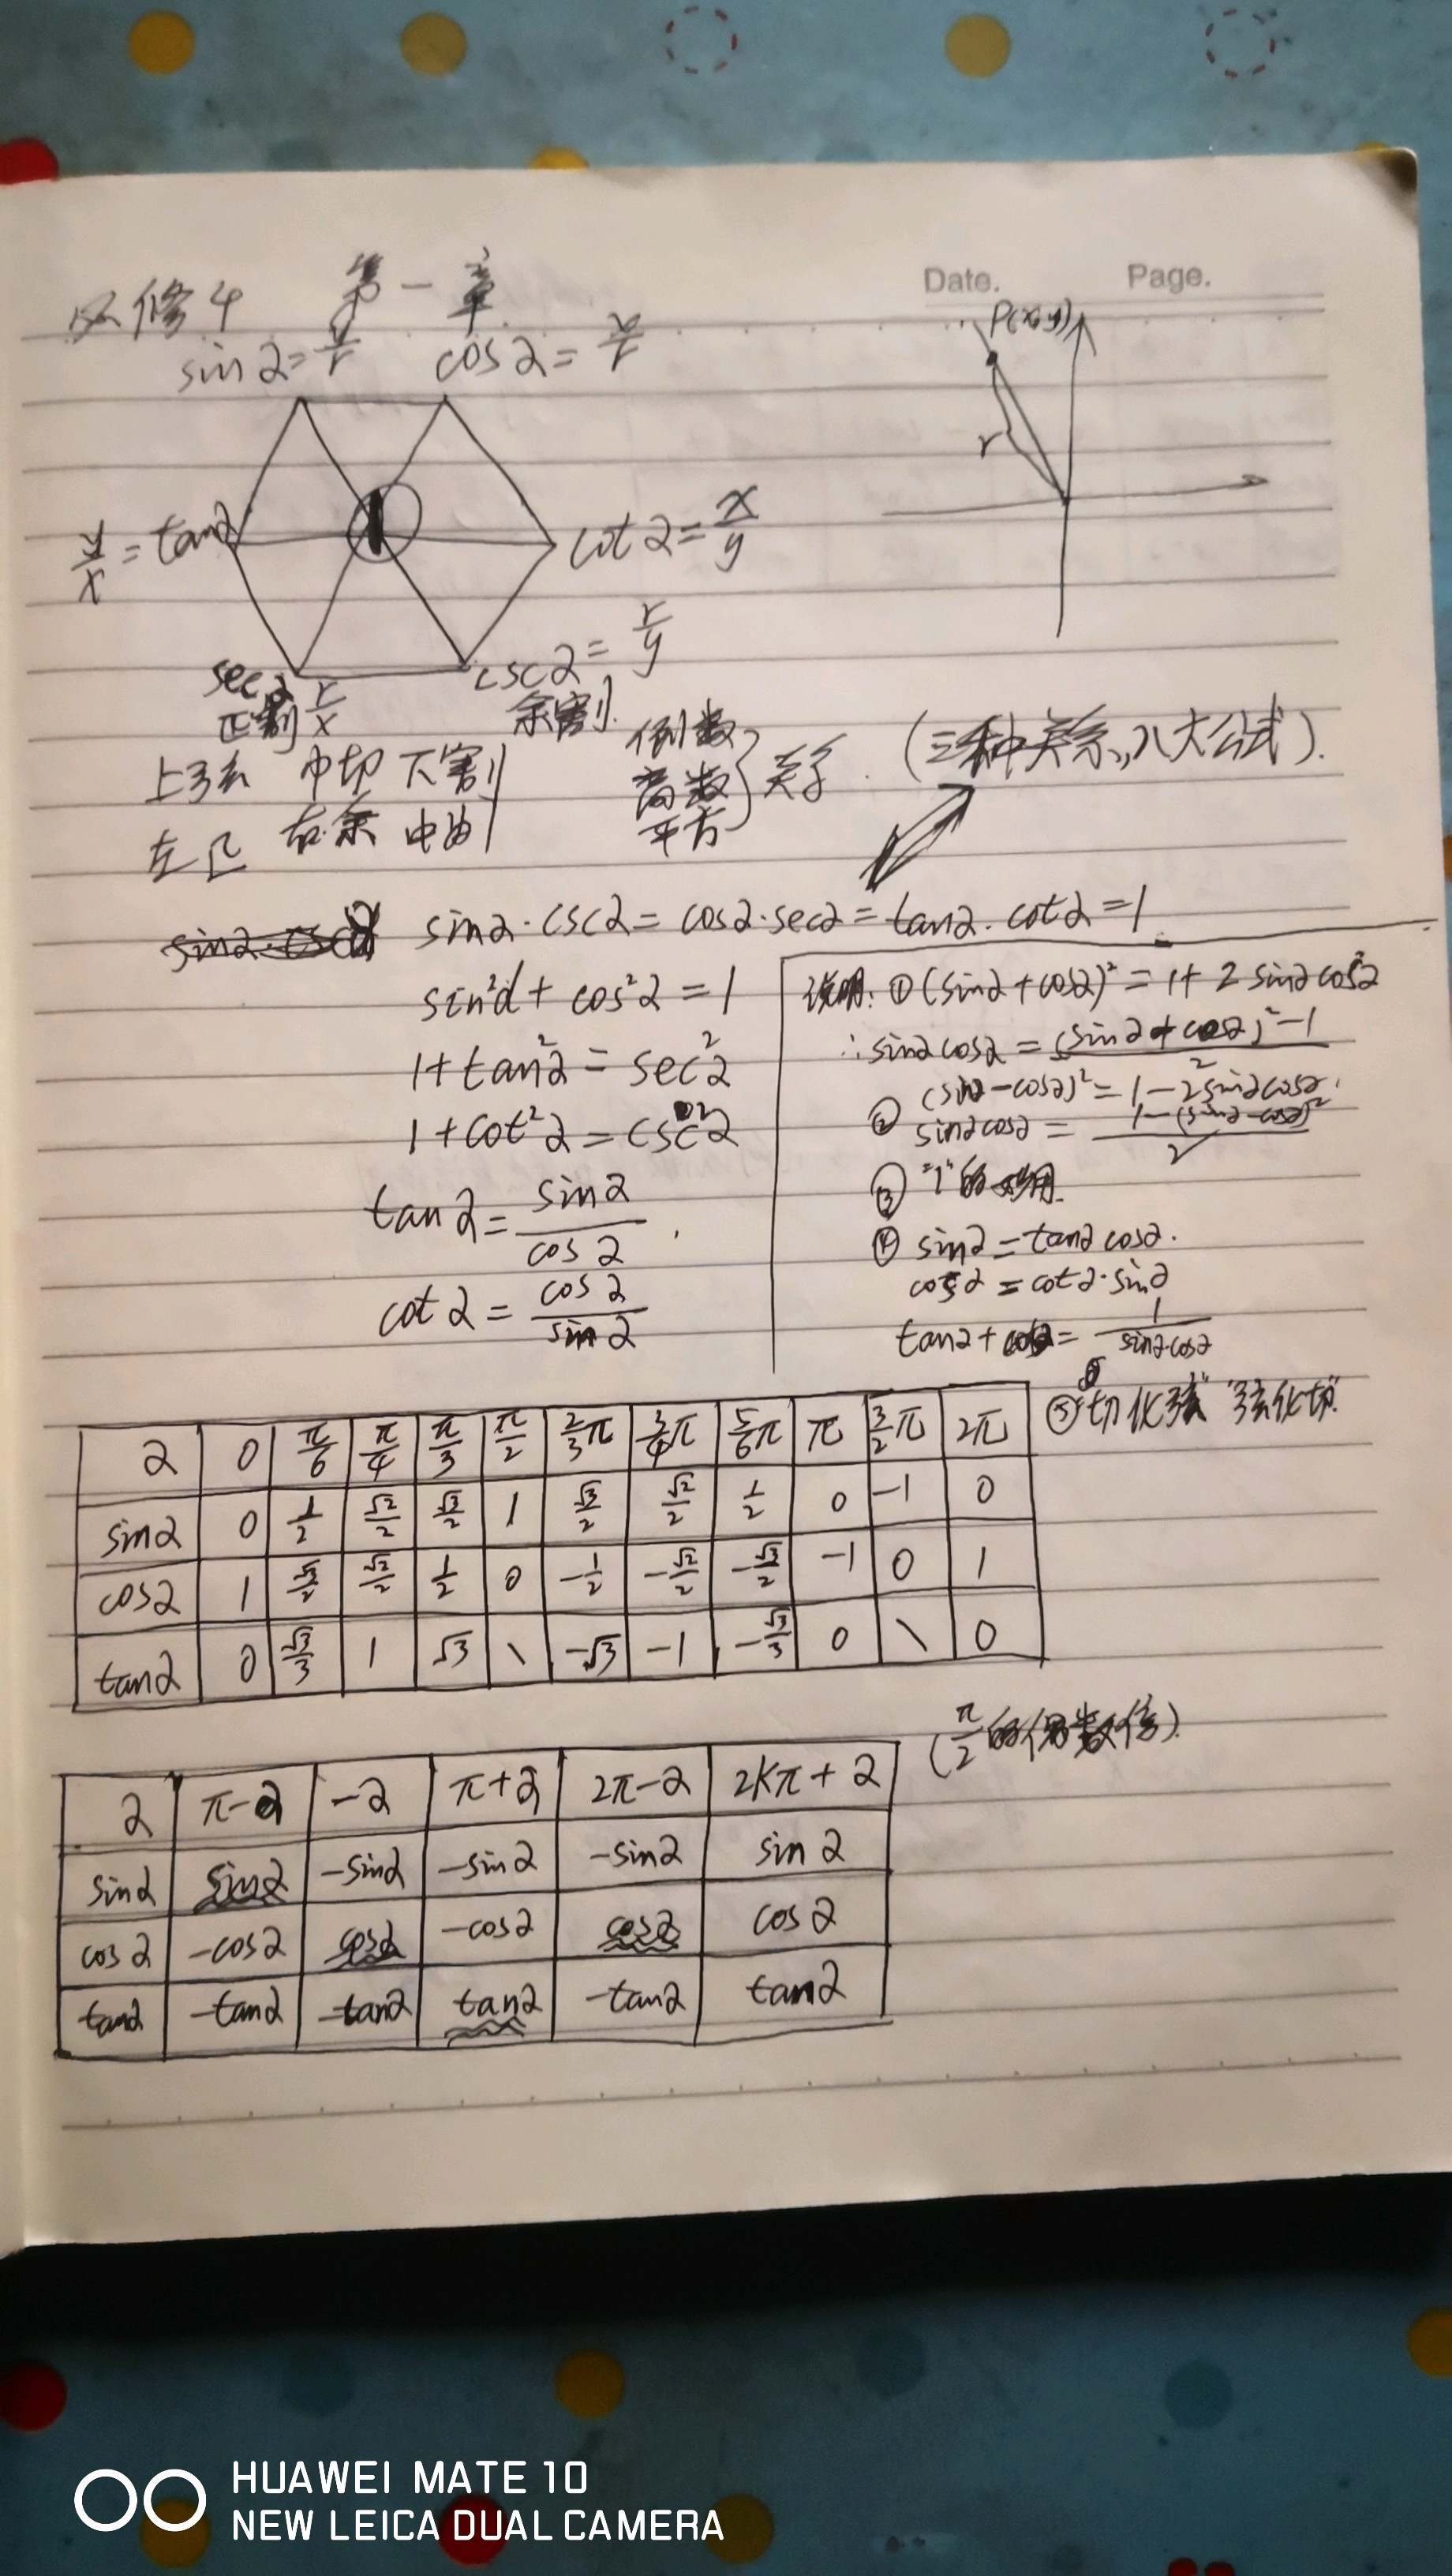 Date. Page.
必修4 第一章
sinα=y/r cosα=x/r
P(x,y)
r
y/x=tanα
1
cotα=x/y
secα r/x cscα=r/y
正割 余割
上弦 中切 下割
左正 右余 中由1
倒数
商数
平方
}关系.
(三种关系,八大公式).
sinα·cscα=cosα·secα=tanα·cotα=1
sin²α+cos²α=1
1+tan²α=sec²α
1+cot²α=csc²α
tanα=sinα/cosα
cotα=cosα/sinα
说明:①(sinα+cosα)²=1+2sinαcosα
∴sinαcosα=((sinα+cosα)²-1)/2
②(sinα-cosα)²=1-2sinαcosα.
sinαcosα=(1-(sinα-cosα)²)/2
③"1"的妙用.
④sinα=tanαcosα.
cosα=cotα·sinα
tanα+cotα=1/(sinαcosα)
⑤"切化弦""弦化切"
α 0 π/6 π/4 π/3 π/2 2/3π 3/4π 5/6π π 3/2π 2π
sinα 0 1/2 √2/2 √3/2 1 √3/2 √2/2 1/2 0 -1 0
cosα 1 √3/2 √2/2 1/2 0 -1/2 -√2/2 -√3/2 -1 0 1
tanα 0 √3/3 1 √3 \ -√3 -1 -√3/3 0 \ 0
(π/2的偶数倍).
α π-α -α π+α 2π-α 2kπ+α
sinα sinα -sinα -sinα -sinα sinα
cosα -cosα cosα -cosα cosα cosα
tanα -tanα -tanα tanα -tanα tanα
HUAWEI MATE 10
NEW LEICA DUAL CAMERA